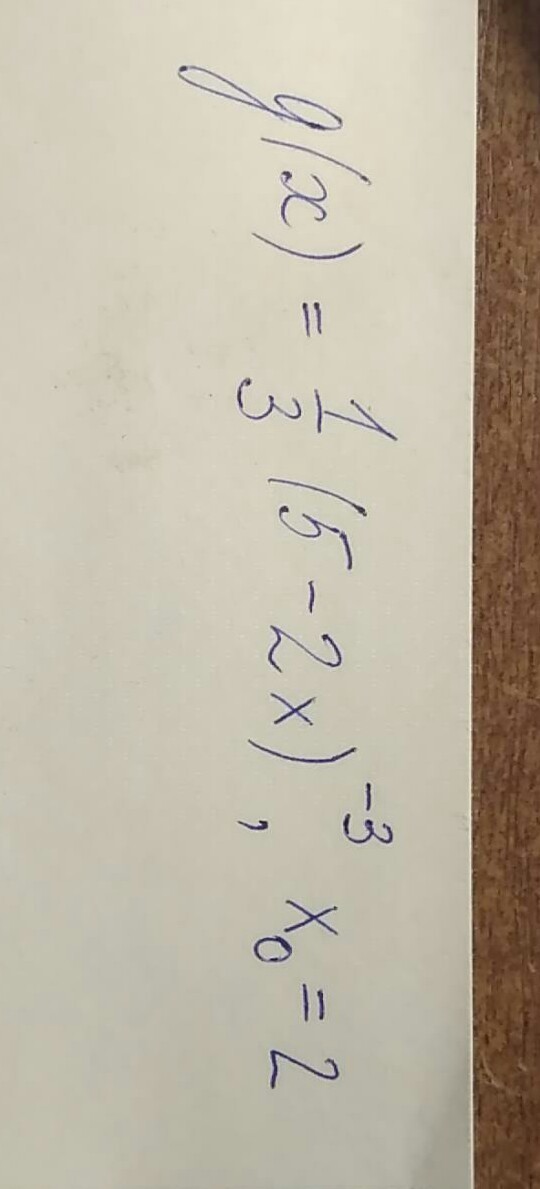 g(x) = 1/3 (5 - 2x)^-3, x₀ = 2